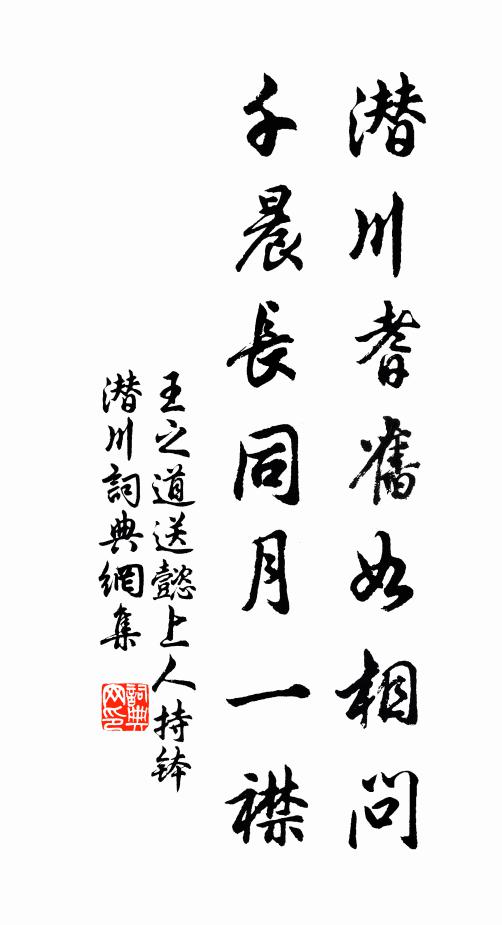 潜川耆舊如相問
千晨長同月一襟
王之道送懿上人持鉢
潜川詞典網集
詞典网印